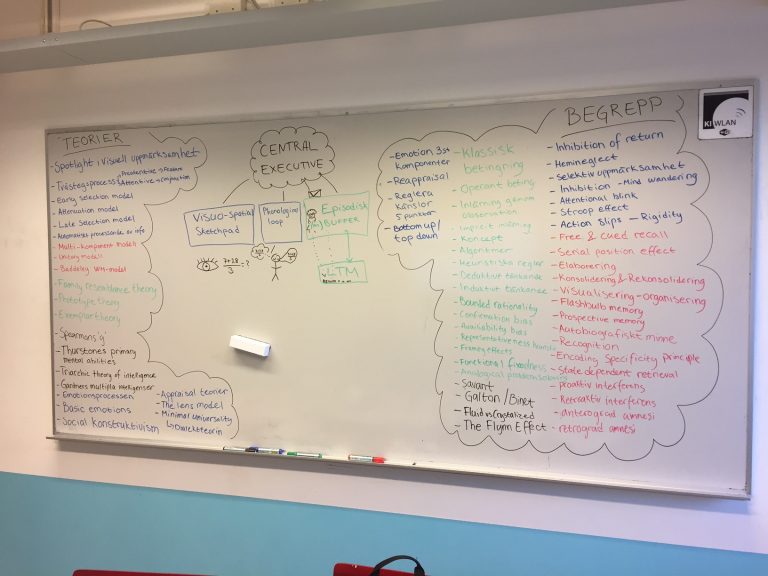 TEORIER
- Spotlight i Visuell uppmärksamhet
- Tvåstegsprocess
Preattentive → Feature
Attentive →
- Early selection model
- Attenuation model
- Late Selection model
- Automatisk processande av info
- Multi-komponent modell
- Unitary modell
- Baddeley WM-modell
- Family resemblance theory
- Prototype theory
- Exemplar theory
- Spearmans 'g'
- Thurstones primary
mental abilities
- Triarchic theory of intelligence
- Gardners multipla intelligenser
- Emotionsprocessen
- Basic emotions
- Social konstruktivism
- Appraisal teorier
- The lens model
- Minimal universality
↳ Dialektteorin
CENTRAL
EXECUTIVE
VISUO-Spatial
Sketchpad
Phonological
loop
Episodisk
BUFFER
7+28
3
÷ ?
LTM
BEGREPP
- Emotion 3st
komponenter
- Reappraisal
- Reglera
känslor
5 punkter
- Bottom up/
top down
- Klassisk
betingning
- Operant beting
- Inlärning genom
observation
- Implicit inlärning
- Koncept
- Algoritmer
- Heuristiska regler
- Deduktivt tänkande
- Induktivt tänkande
- Bounded rationality
- Confirmation bias
- Availability bias
- Representativeness heuristic
- Frame effects
- Functional fixedness
- Analogical problemsolving
- Savant
- Galton/Binet
- Fluid vs Crystalized
- The Flynn Effect
- Inhibition of return
- Hemineglect
- Selektiv uppmärksamhet
- Inhibition - Mind wandering
- Attentional blink
- Stroop effect
- Action Slips - Rigidity
- Free & cued recall
- Serial position effect
- Elaborering
- Konsolidering & Rekonsolidering
- Visualisering - organisering
- Flashbulb memory
- Prospective memory
- Autobiografiskt minne
- Recognition
- Encoding Specificity principle
- State dependent retrieval
- proaktiv interferens
- Retroaktiv interferens
- anterograd amnesi
- retrograd amnesi
KI WLAN